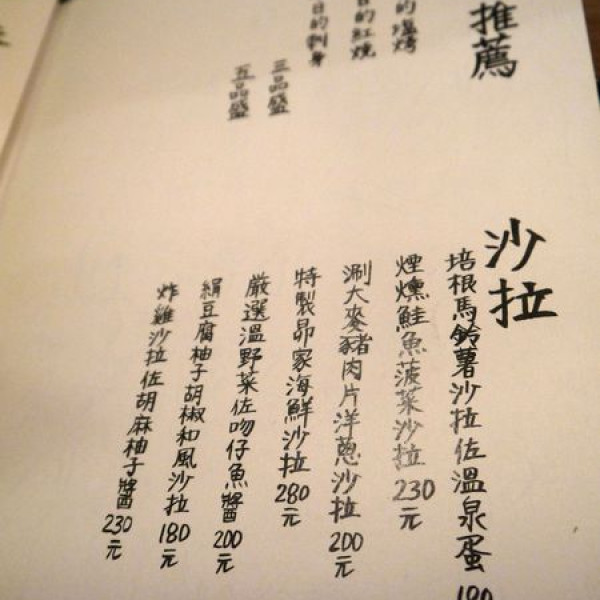 推薦
的塩烤
日的紅燒
日的刺身
三品盛
五品盛
沙拉
培根馬鈴薯沙拉佐溫泉蛋 180
煙燻鮭魚菠菜沙拉 230元
涮大麥豬肉片洋蔥沙拉 200元
特製昴家海鮮沙拉 280元
厳選溫野菜佐吻仔魚醬 200元
絹豆腐柚子胡椒和風沙拉 180元
炸雞沙拉佐胡麻柚子醬 230元